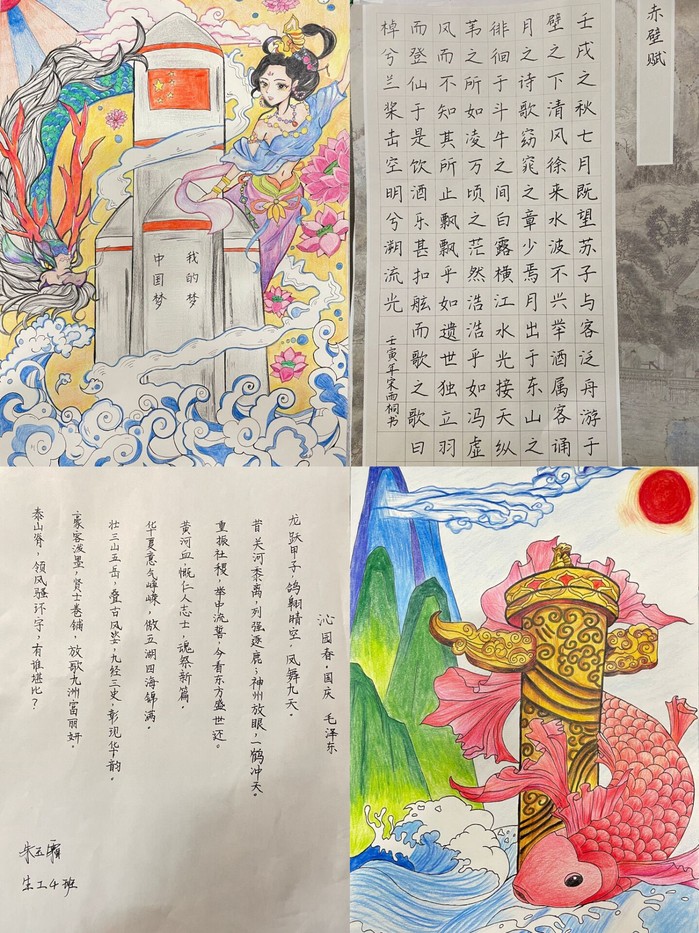 我的梦
中国梦
赤壁赋
壬戌之秋七月既望苏子与客泛舟游于
壁之下清风徐来水波不兴举酒属客诵
月之诗歌窈窕之章少焉月出于东山之
徘徊于斗牛之间白露横江水光接天纵
苇之所如凌万顷之茫然浩浩乎如冯虚
风而不知其所止飘飘乎如遗世独立羽
而登仙于是饮酒乐甚扣舷而歌之歌曰
棹兮兰桨击空明兮溯流光
壬寅年宋雨桐书
沁园春·国庆 毛泽东
龙跃甲子,鸽翱晴空,凤舞九天。
昔关河黍离,列强逐鹿;神州放眼,一鹤冲天。
重振社稷,举中流誓,今看东方盛世还。
黄河血,慨仁人志士,魂祭新篇。
华夏意气峥嵘,傲五湖四海锦满。
壮三山五岳,叠古风姿;九经三史,彰现华韵。
豪客泼墨,贤士卷铺,放歌九洲富丽妍。
泰山脊,领风骚环宇,有谁堪比?
朱玉
生工4班